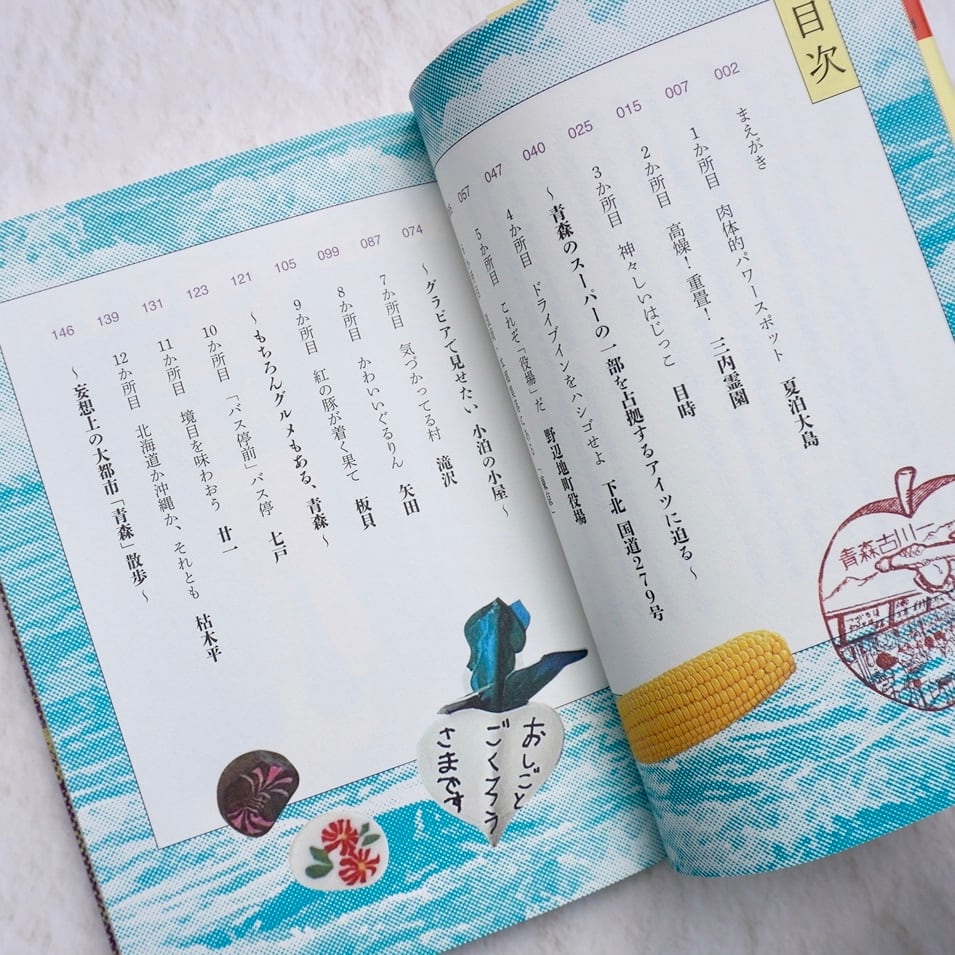 目次
002 まえがき
007 1か所目 肉体的パワースポット 夏泊大島
015 2か所目 高燥！重畳！ 三内霊園
025 3か所目 神々しいはじっこ 目時
040 〜青森のスーパーの一部を占拠するアイツに迫る〜
047 4か所目 ドライブインをハシゴせよ 下北 国道279号
057 5か所目 これぞ「役場」だ 野辺地町役場
074 〜グラビアで見せたい 小泊の小屋〜
087 7か所目 気づかってる村 滝沢
099 8か所目 かわいいぐるりん 矢田
105 9か所目 紅の豚が着く果て 板貝
121 〜もちろんグルメもある、青森〜
123 10か所目 「バス停前」バス停 七戸
131 11か所目 境目を味わおう 廿一
139 12か所目 北海道か沖縄か、それとも 枯木平
146 〜妄想上の大都市「青森」散歩〜
青森古川
おしごと
ごくろう
さまです